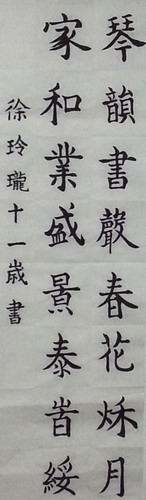 琴韻書聲春花秌月
家和業盛景泰旹綏
徐玲瓏十一歲書